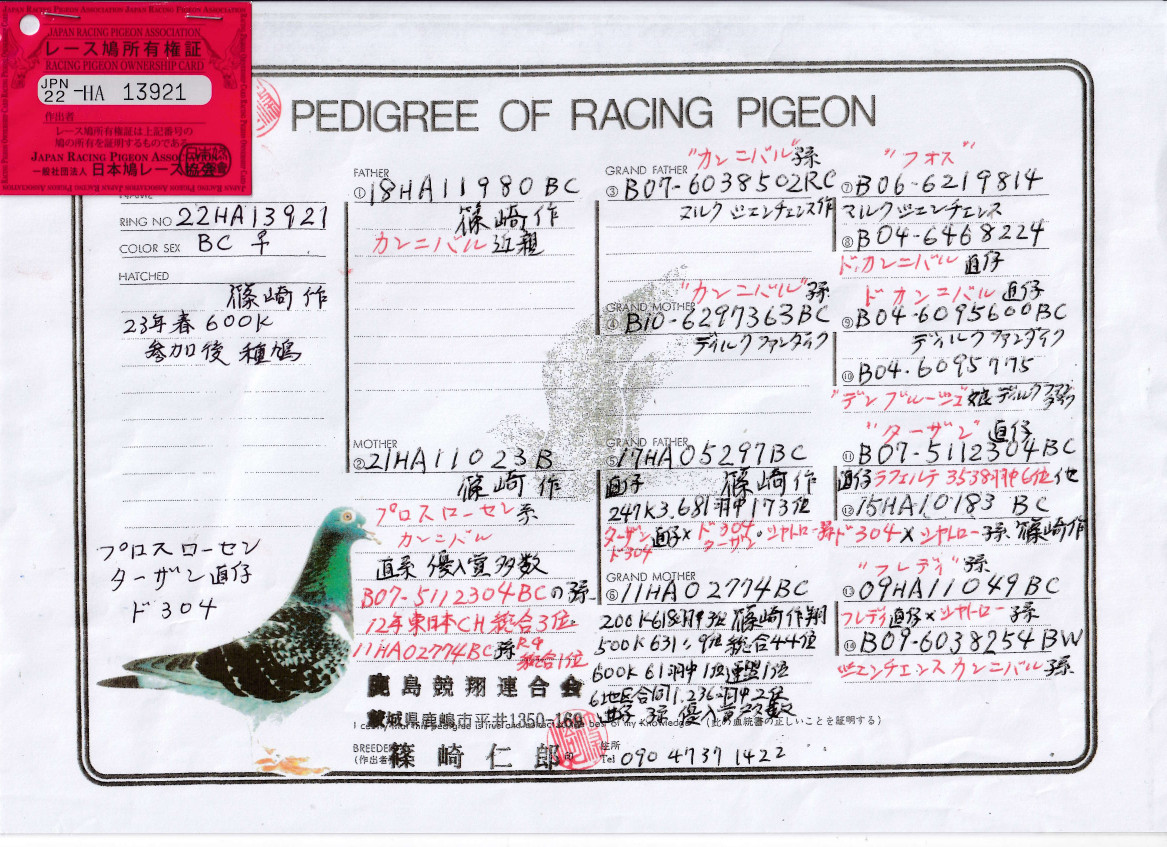 JAPAN RACING PIGEON ASSOCIATION
レース鳩所有権証
RACING PIGEON OWNERSHIP CARD
JPN 22 -HA 13921
作出者
レース鳩所有権証は上記番号の
鳩の所有を証明するものである
JAPAN RACING PIGEON ASSOCIATION
一般社団法人 日本鳩レース協会
PEDIGREE OF RACING PIGEON
RING NO 22HA13921
COLOR SEX BC ♀
HATCHED
篠崎作
23年春600K
参加後 種鳩
プロスローセン
ターザン直仔
ド304
FATHER
① 18HA11980BC
篠崎作
カンニバル近親
MOTHER
② 21HA11023B
篠崎作
プロスローセン系
カンニバル
直系 優入賞多数
B07-5112304BCの孫
12年東日本CH総合3位
11HA02774BC孫 R9
総合1位
"カンニバル"孫
GRAND FATHER
③ B07-6038502RC
マルクジェンチェンス作
"カンニバル"孫
GRAND MOTHER
④ B10-6297363BC
ディルクファンダイク
GRAND FATHER
⑤ 17HA05297BC
直仔 篠崎作
247K3.681羽中173位
ターザン直仔×ド304
ド304 ターザン
GRAND MOTHER
⑥ 11HA02774BC
200K618羽中3位 篠崎作翔
500K631〃9位総合44位
600K61羽中1位連盟1位
6地区合同1.236羽中2位
直仔 孫 優入賞多数
"フォス"
⑦ B06-6219814
マルクジェンチェンス
⑧ B04-6468224
ド,カンニバル 直仔
ドカンニバル 直仔
⑨ B04-6095600BC
ディルクファンダイク
⑩ B04-6095775
"デンブルージュ"娘ディルクファンダイク
"ターザン"直仔
⑪ B07-5112304BC
直仔ラフェルテ3538羽中6位他
⑫ 15HA10183 BC
ド304×シャトロー孫 篠崎作
"フレディ"孫
⑬ 09HA11049BC
フレディ直仔×シャトロー孫
⑭ B09-6038254BW
ジェンチェンスカンニバル孫
鹿島競翔連合会
茨城県鹿嶋市平井1350-169
I certify that this pedigree is true and correct to the best of my Knowledge (此の血統書の正しいことを証明する)
BREEDER
(作出者) 篠崎仁郎 印
住所
Tel 090 4737 1422